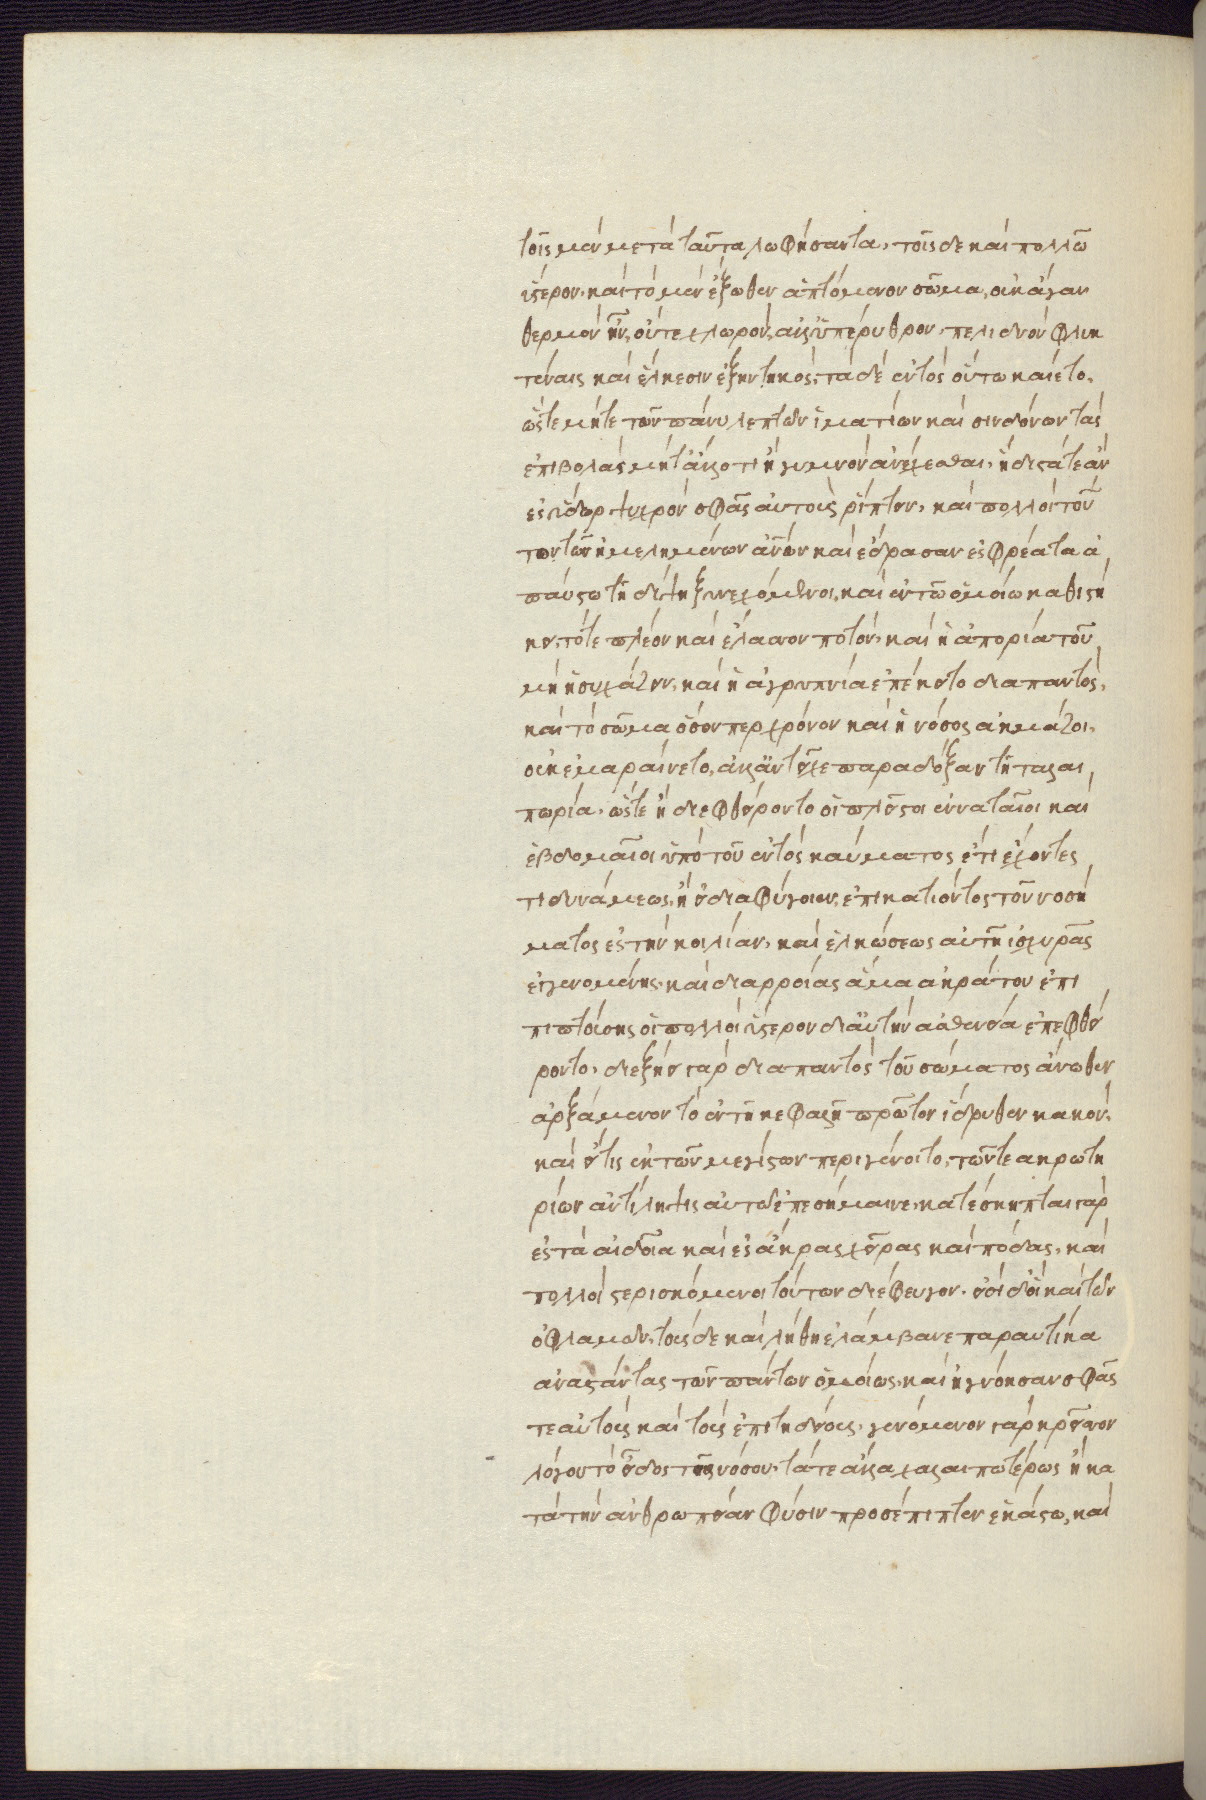 τοῖς μὲν μετὰ ταῦτα λωφήσαντα, τοῖς δὲ καὶ πολλῶ
ὕστερον. καὶ τὸ μὲν ἔξωθεν ἁπτόμενον σῶμα, οὐκ ἄγαν
θερμὸν ἦν, οὔτε χλωρόν, ἀλλ' ὑπέρυθρον, πελιδνὸν φλυκ
ταίναις καὶ ἕλκεσιν ἐξηνθηκός. τὰ δὲ ἐντὸς οὕτω καίετο,
ὥστε μήτε τῶν πάνυ λεπτῶν ἱματίων καὶ σινδόνων τὰς
ἐπιβολὰς μήτ' ἄλλο τι ἢ γυμνὸν ἀνέχεσθαι, ἥδιστά τε ἂν
ἐς ὕδωρ ψυχρὸν σφᾶς αὐτοὺς ῥίπτειν, καὶ πολλοὶ τοῦ
το τῶν ἠμελημένων ἀνων καὶ ἔδρασαν ἐς φρέατα ἀ
παύστω τῆ δίψη ξυνεχόμενοι, καὶ ἐν τῶ ὁμοίω καθιστή
κει, τότε πλέον καὶ ἔλασσον ποτόν, καὶ ἡ ἀπορία τοῦ
μὴ ἡσυχάζειν, καὶ ἡ ἀγρυπνία ἐπέκειτο διαπαντός.
καὶ τὸ σῶμα ὅσον περ χρόνον καὶ ἡ νόσος ἀκμάζοι,
οὐκ ἐμαραίνετο, ἀλλ' ἀντεῖχε παρα δόξαν τῆ ταλαι
πωρία, ὥστε ἢ διεφθείροντο οἱ πλεῖστοι ἐνναταῖοι καὶ
ἑβδομαῖοι ὑπὸ τοῦ ἐντὸς καύματος ἔτι ἔχοντες
τι δυνάμεως, ἢ εἰ διαφύγοιεν, ἐπικατιόντος τοῦ νοσή
ματος ἐς τὴν κοιλίαν, καὶ ἑλκώσεως αὐτῆ ἰσχυρᾶς
ἐγγενομένης, καὶ διαρροίας ἅμα ἀκράτου ἐπι
πιπτούσης οἱ πολλοὶ ὕστερον δι' αὐτὴν ἀσθενεία ἐπεφθεί
ροντο, διεξήει γὰρ διαπαντὸς τοῦ σώματος ἄνωθεν
ἀρξάμενον τὸ ἐν τῆ κεφαλῆ πρῶτον ἱδρυθὲν κακόν.
καὶ εἴ τις ἐκ τῶν μεγίστων περιγένοιτο, τῶν τε ἀκρωτη
ρίων ἀντίληψις αὐτοῦ ἐπεσήμαινε, κατέσκηπται γὰρ
ἐς τὰ αἰδοῖα καὶ ἐς ἄκρας χεῖρας καὶ πόδας, καὶ
πολλοὶ στερισκόμενοι τούτων διέφευγον. εἰσὶ δ' οἳ καὶ τῶν
ὀφλαμῶν, τοὺς δὲ καὶ λήθη ἐλάμβανε παραυτίκα
ἀναστάντας τῶν πάντων ὁμοίως, καὶ ἠγνόησαν σφᾶς
τε αὐτοὺς καὶ τοὺς ἐπιτηδείους, γενόμενον γὰρ κρεῖσσον
λόγου τὸ εἶδος τῆς νόσου, τά τε ἄλλα χαλεπωτέρως ἢ κα
τὰ τὴν ἀνθρωπείαν φύσιν προσέπιπτεν ἑκάστω, καὶ